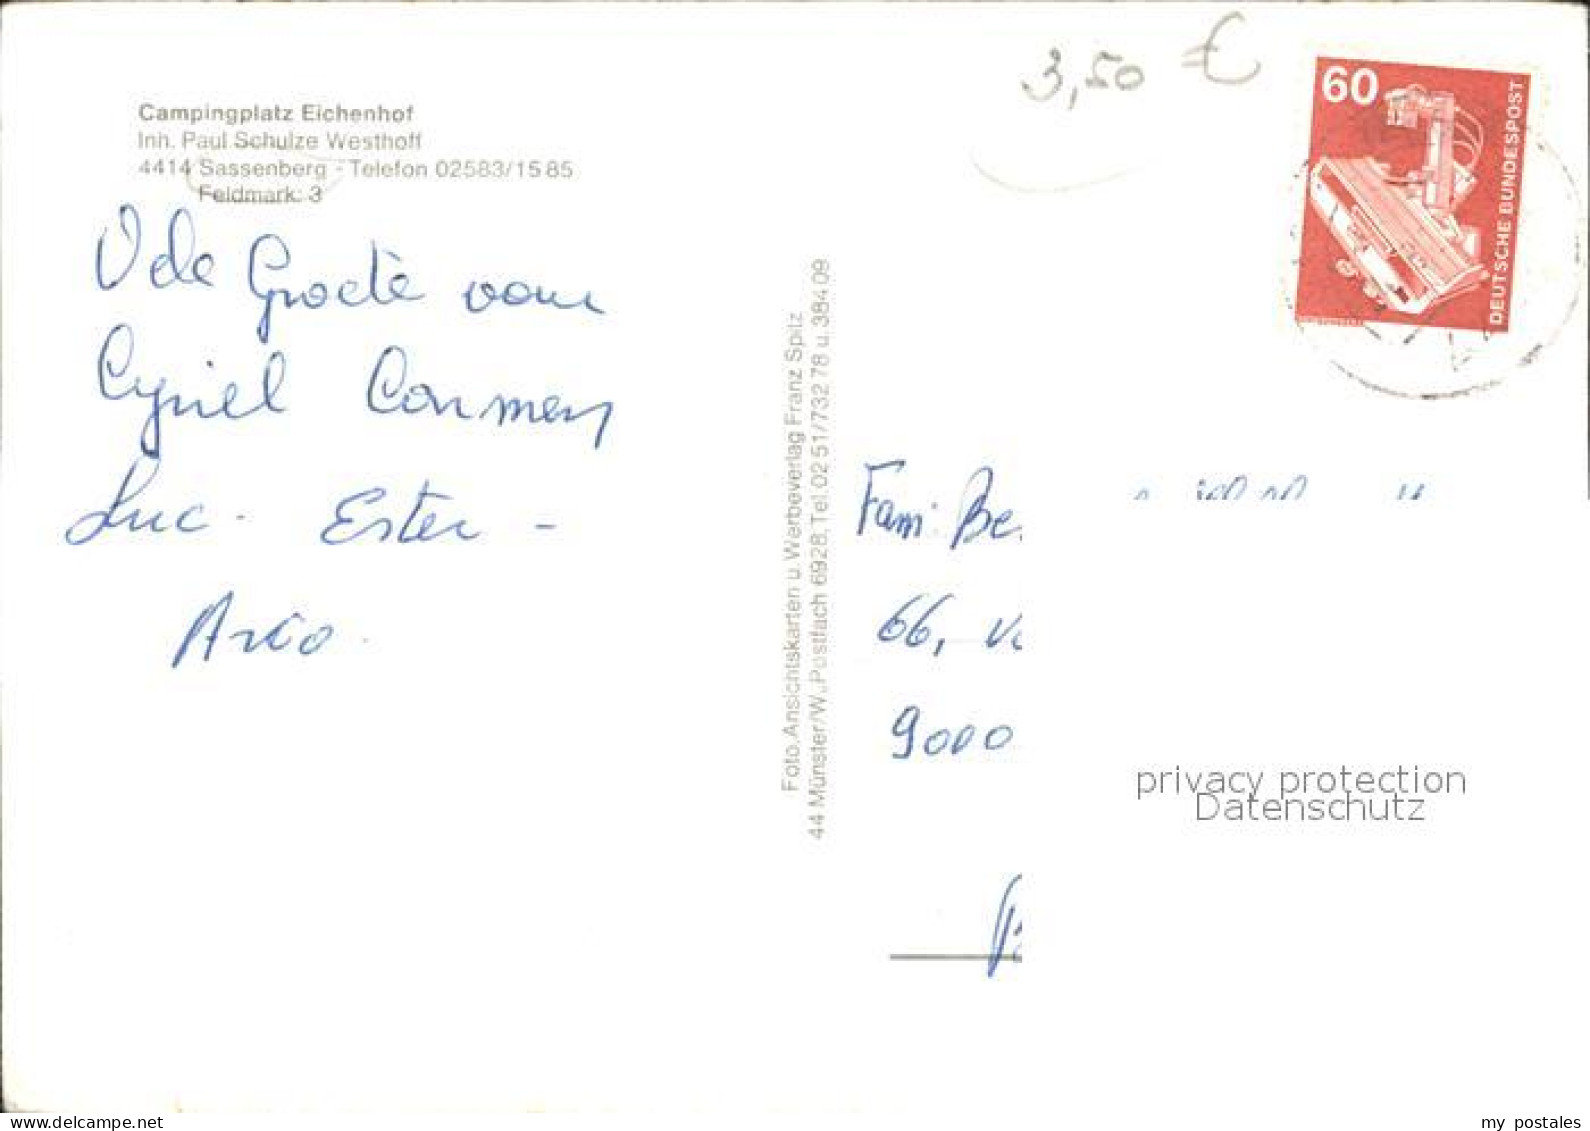 3,50 €
60
DEUTSCHE BUNDESPOST
Campingplatz Eichenhof
Inh. Paul Schulze Westhoff
4414 Sassenberg - Telefon 02583/1585
Feldmark: 3
Vele Groete vom
Cyriel Carmen
Luc - Ester -
Arco.
Foto, Ansichtskarten u. Werbeverlag Franz Spitz
44 Münster/W., Postfach 6928, Tel. 0251/73278 u. 38409
Fam: Be
66,
9000
privacy protection
Datenschutz
my postales